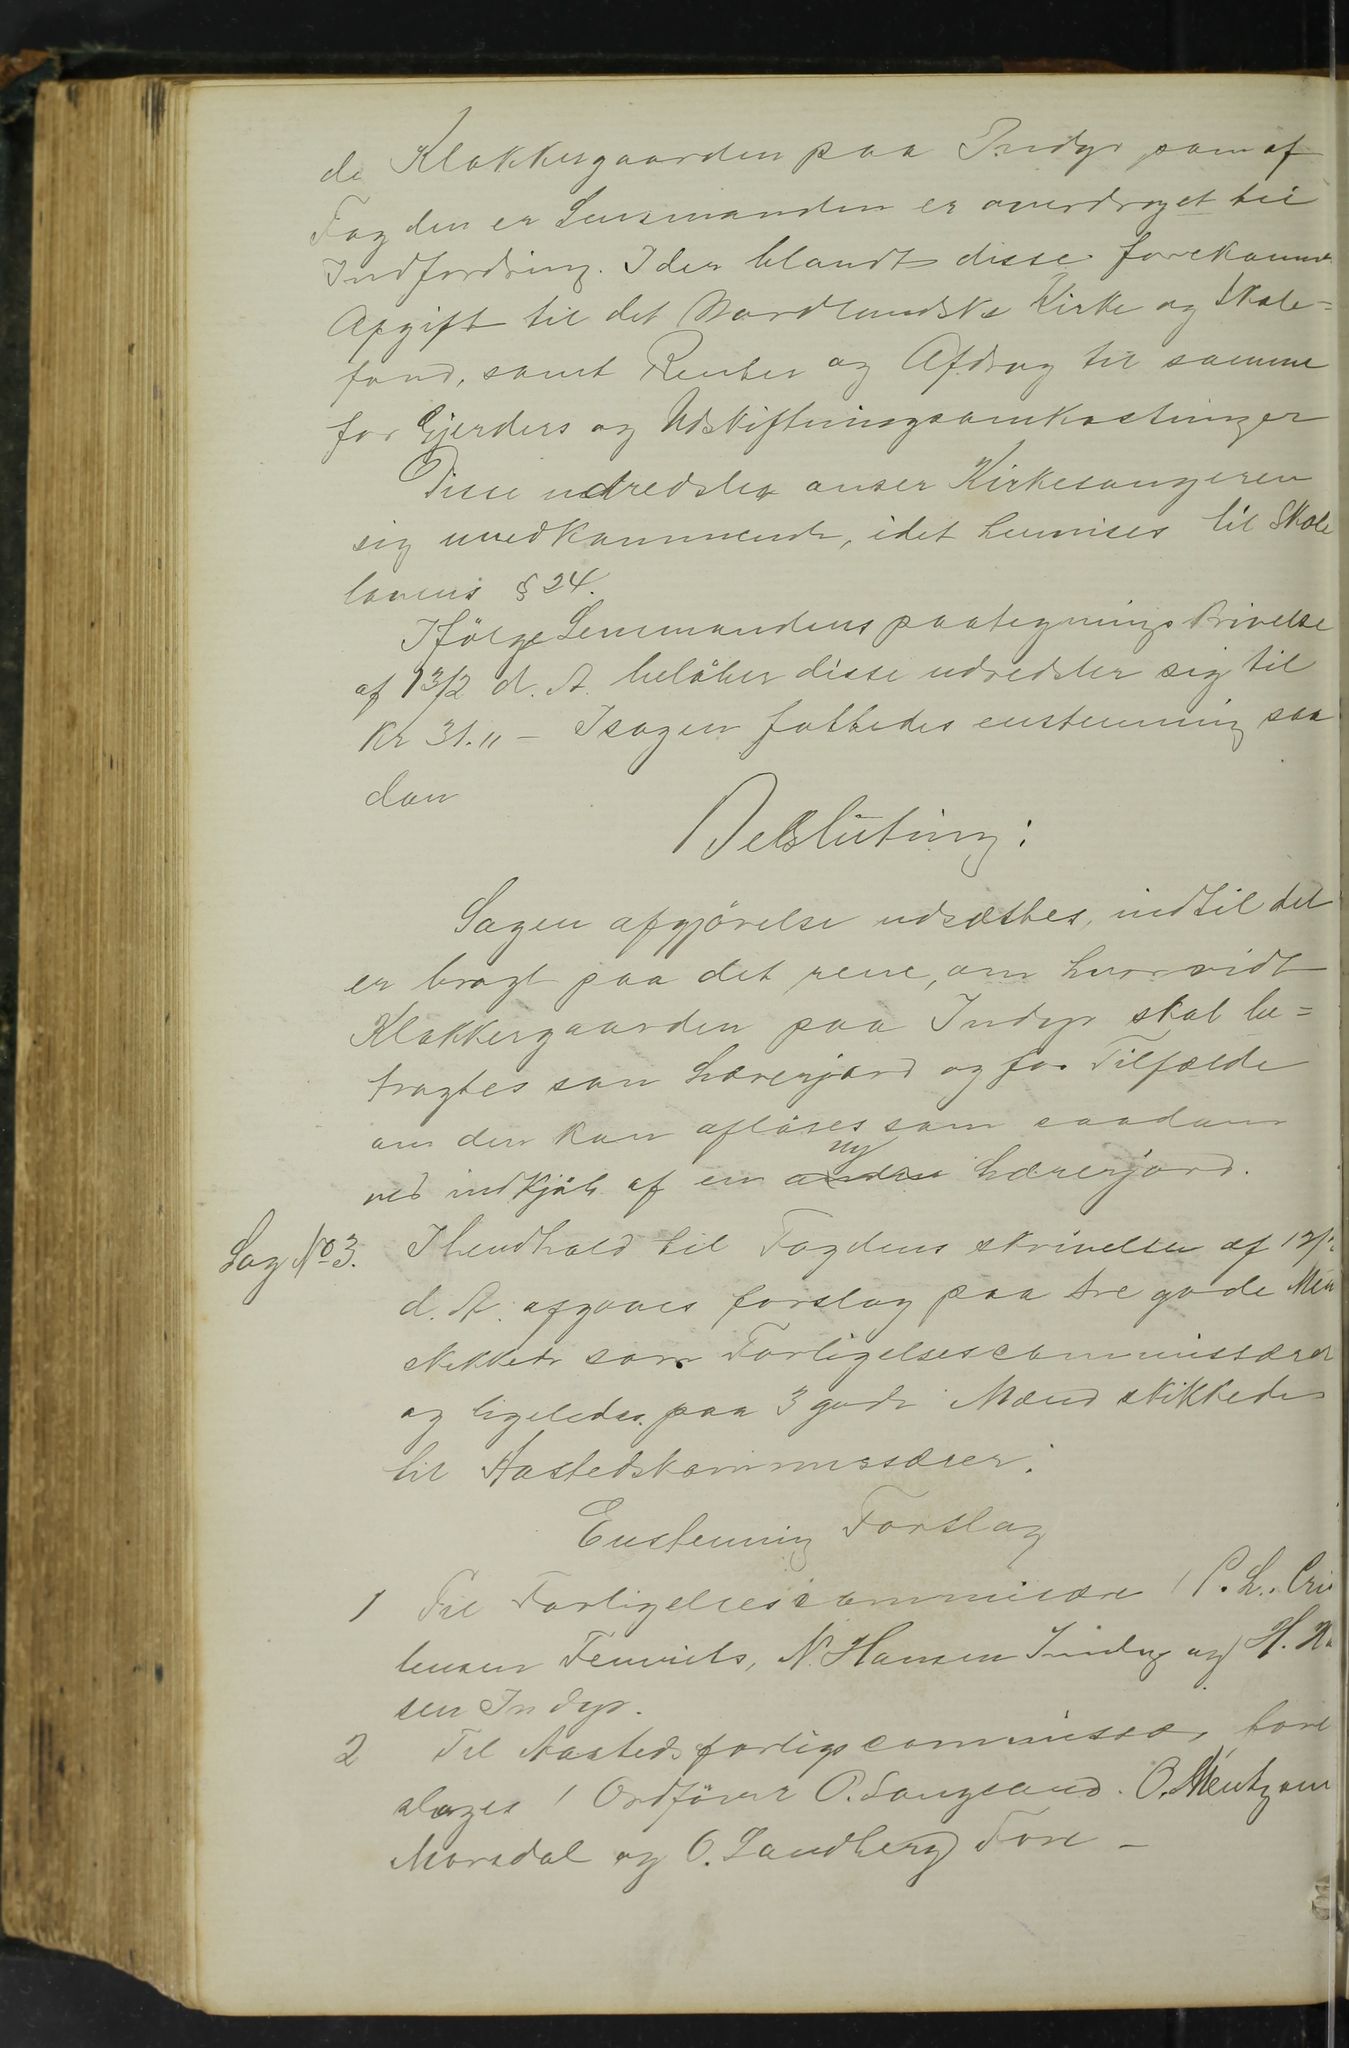 de Klokkergaarden paa Indyr som af
Fogden er Lensmanden er overdraget til
Indfordring. I der blandt disse forekomme
Afgift til det Nordlandske Kirke og Skole=
fond, samt Renter og Afdrag til samme
for Gjerders og Udskiftningsomkostninger
Disse udredsler anser Kirkesangeren
sig uvedkommende, idet henvises til Skole
lovens § 24.
Ifölge Lensmandens paategningsskrivelse
af 13/2 d. A. belöber disse udredsler sig til
Kr 31.,, – I sagen fattedes enstemmig saa
dan
Beslutning:
Sagen afgjörelse udsættes, indtil det
er bragt paa det rene, om hvorvidt
Klokkergaarden paa Indyr skal be=
tragtes som Lærerjord og for Tilfælde
om den kan aflöses som saadan
ny
ved indkjöb af en anden Lærerjord.
Sag No 3. I henhold til Fogdens skrivelse af 12/2
d. A. afgaves forslag paa tre gode Mæn
skikkede som Forligelsescommissærer
og ligeledes paa 3 gode Mænd skikkede
til Aastedskommissærer.
Enstemmig Forslag
1 Til Forligelsescommissære P. L. Cri
tensen Fenvik, N. Hansen Indyr og H. Ha
sen Indyr.
2 Til Aastedsforligscommissær fore
slages Ordförer P. Langsand. O. Mentzom
Morsdal og O. Sandberg Fore –